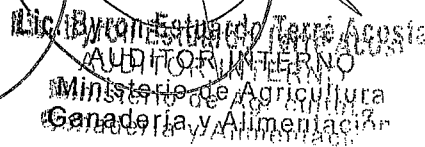 Lic. Byron Estuardo Terré Acosta
AUDITOR INTERNO
Ministerio de Agricultura
Ganadería y Alimentación